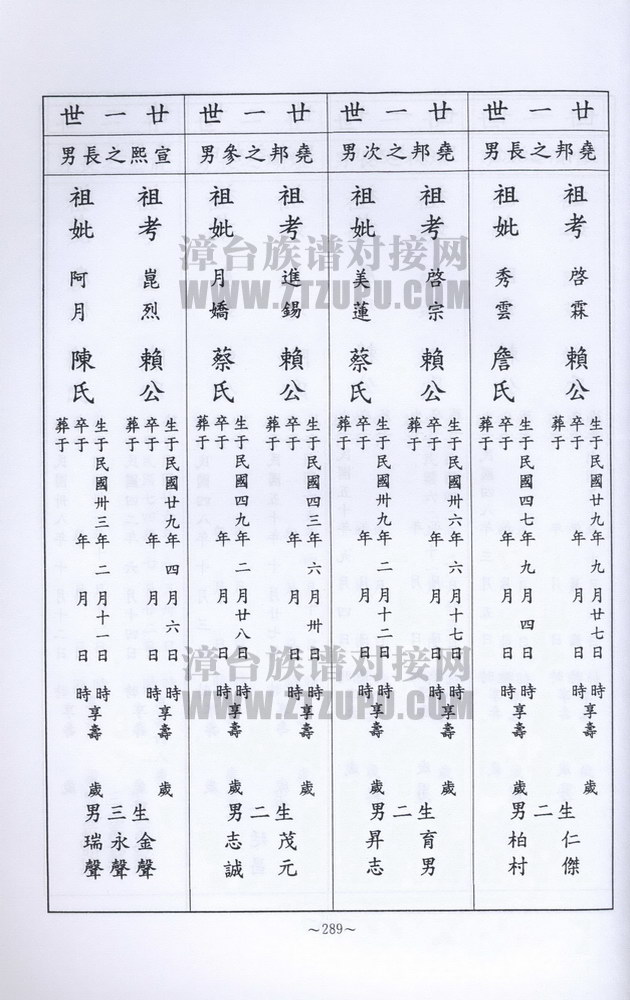 廿一世
堯邦之長男
祖考 啓霖 賴公
生于民國廿九年九月廿七日 時享壽 歲
卒于 年 月 日 時
葬于
祖妣 秀雲 詹氏
生于民國四七年九月四日 時享壽 歲
卒于 年 月 日 時
葬于
生二男
仁傑
柏村
廿一世
堯邦之次男
祖考 啓宗 賴公
生于民國卅六年六月十七日 時享壽 歲
卒于 年 月 日 時
葬于
祖妣 美蓮 蔡氏
生于民國卅九年二月十二日 時享壽 歲
卒于 年 月 日 時
葬于
生二男
育男
昇志
廿一世
堯邦之參男
祖考 進錫 賴公
生于民國四三年六月卅日 時享壽 歲
卒于 年 月 日 時
葬于
祖妣 月嬌 蔡氏
生于民國四九年二月廿八日 時享壽 歲
卒于 年 月 日 時
葬于
生二男
茂元
志誠
廿一世
宣熙之長男
祖考 崑烈 賴公
生于民國廿九年四月六日 時享壽 歲
卒于 年 月 日 時
葬于
祖妣 阿月 陳氏
生于民國卅三年二月十一日 時享壽 歲
卒于 年 月 日 時
葬于
生三男
金聲
永聲
瑞聲
~289~
漳台族谱对接网
WWW.ZTZUPU.COM
漳台族谱对接网
WWW.ZTZUPU.COM